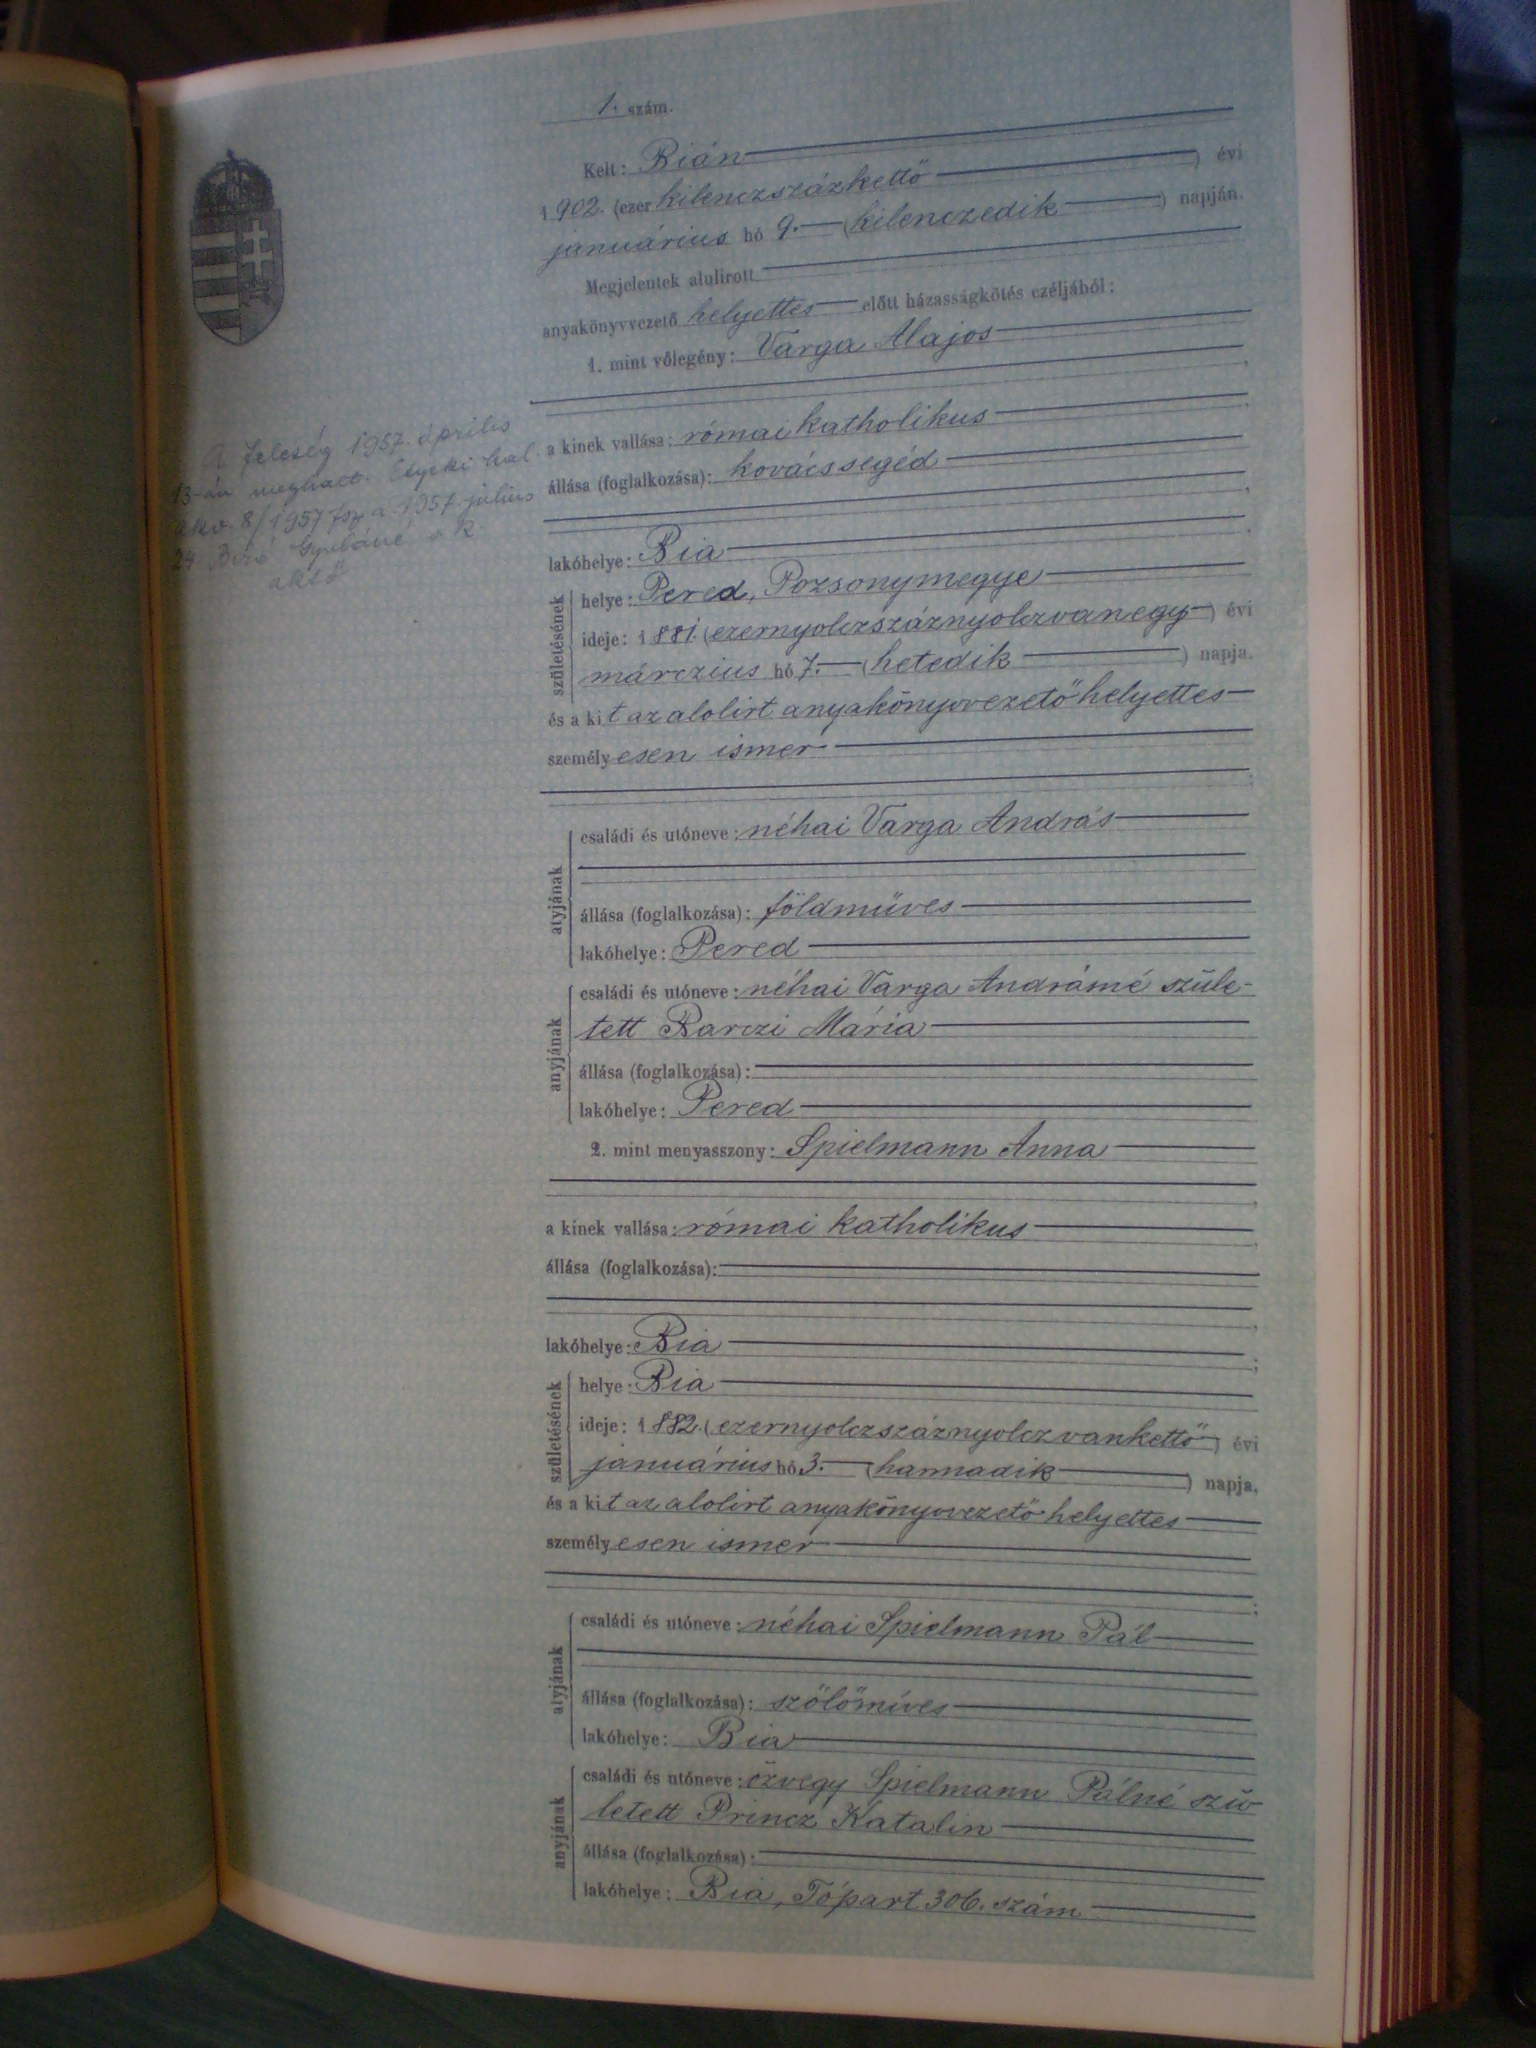 1. szám.
Kelt: Bián
1902. (ezer kilenczszázkettő) évi
januárius hó 9. (kilenczedik) napján.
Megjelentek alulirott
anyakönyvvezető helyettes előtt házasságkötés czéljából:
1. mint vőlegény: Varga Alajos
a kinek vallása: római katholikus
állása (foglalkozása): kovácssegéd
lakóhelye: Bia
születésének
helye: Pered, Pozsonymegye
ideje: 1881. (ezernyolczszáznyolczvanegy) évi
márczius hó 7. (hetedik) napja.
és a kit az alolirt anyakönyvvezető helyettes
személyesen ismer
atyjának
családi és utóneve: néhai Varga András
állása (foglalkozása): földmüves
lakóhelye: Pered
anyjának
családi és utóneve: néhai Varga Andrásné szüle-
tett Barczi Mária
állása (foglalkozása):
lakóhelye: Pered
2. mint menyasszony: Spielmann Anna
a kinek vallása: római katholikus
állása (foglalkozása):
lakóhelye: Bia
születésének
helye: Bia
ideje: 1882. (ezernyolczszáznyolczvankettő) évi
januárius hó 3. (harmadik) napja,
és a kit az alolirt anyakönyvvezető helyettes
személyesen ismer
atyjának
családi és utóneve: néhai Spielmann Pál
állása (foglalkozása): szőlőmíves
lakóhelye: Bia
anyjának
családi és utóneve: özvegy Spielmann Pálné szü
letett Princz Katalin
állása (foglalkozása):
lakóhelye: Bia, Tópart 306. szám
A feleség 1957. április
13-án meghalt. Etyeki hal.
akv. 8/1957 fsz a. 1957. július
24. Biró